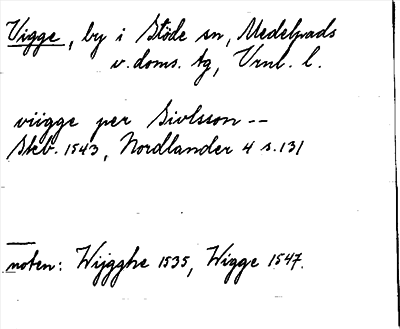 Vigge, by i Stöde sn, Medelpads
v. doms. tg, Vrnl. l.
viigge per Sivlsson --
Skb. 1543, Nordlander 4 s. 131
noten: Wijgghe 1535, Wigge 1547.